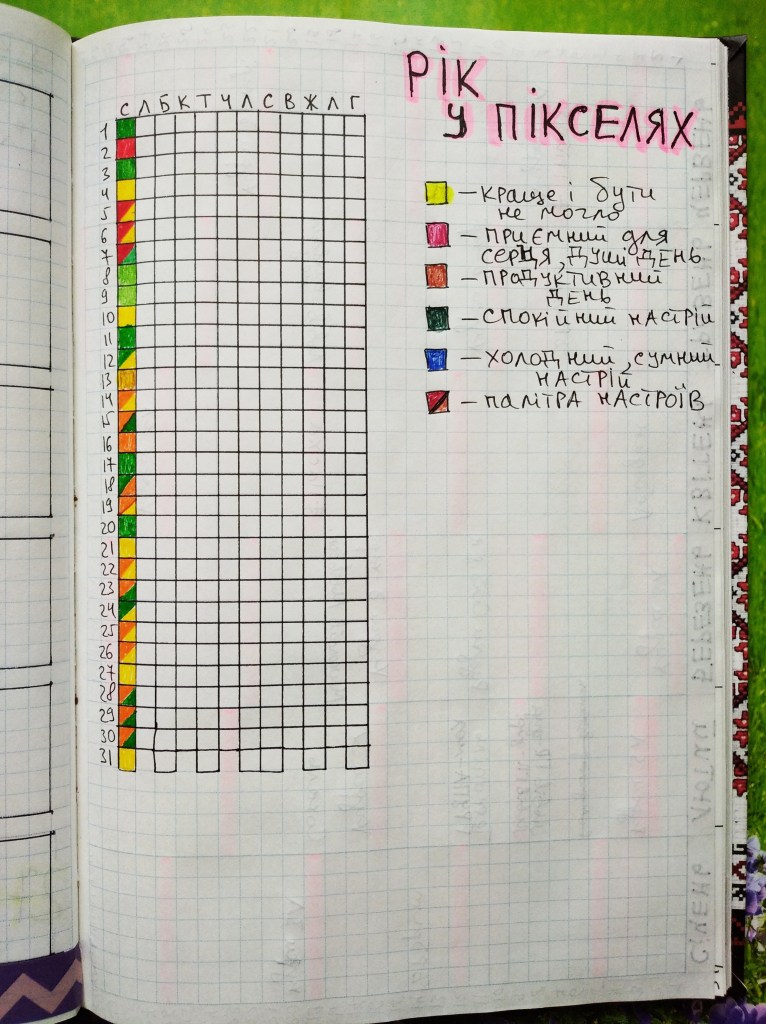 РІК
У ПІКСЕЛЯХ
С Л Б К Т Ч Л С В Ж Л Г
1
2
3
4
5
6
7
8
9
10
11
12
13
14
15
16
17
18
19
20
21
22
23
24
25
26
27
28
29
30
31
– краще і бути
не могло
– приємний для
серця, душі день
– продуктивний
день
– спокійний настрій
– холодний, сумний
настрій
– палітра настроїв